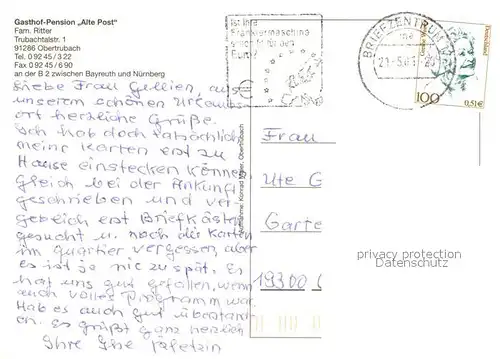 Gasthof-Pension „Alte Post“
Fam. Ritter
Trubachtalstr. 1
91286 Obertrubach
Tel. 0 92 45 / 3 22
Fax 0 92 45 / 6 90
an der B 2 zwischen Bayreuth und Nürnberg
Liebe Frau Gellien, aus
unserem schönen Urlaubs-
ort herzliche Grüße.
Ich hab doch tatsächlich
meine Karten erst zu
Hause einstecken können
gleich bei der Ankunft
geschrieben und ver-
gebeich erst Briefkästen
gesucht u. noch die Karten
im Quartier vergessen, aber
es ist ja nie zu spät. Es
hat uns gut gefallen, wenn
auch volles Programm war.
Hab es auch gut überstan-
en. Es grüßt ganz herzlich
Ihre Ilse
Ist Ihre
Frankiermaschine
schon für den
Euro?
BRIEFZENTRUM
21.-5.01.-20
100
0,51€
Aufnahme: Konrad Majer, Obertrubach
Frau
Ute G
Garte
19300
privacy protection
Datenschutz